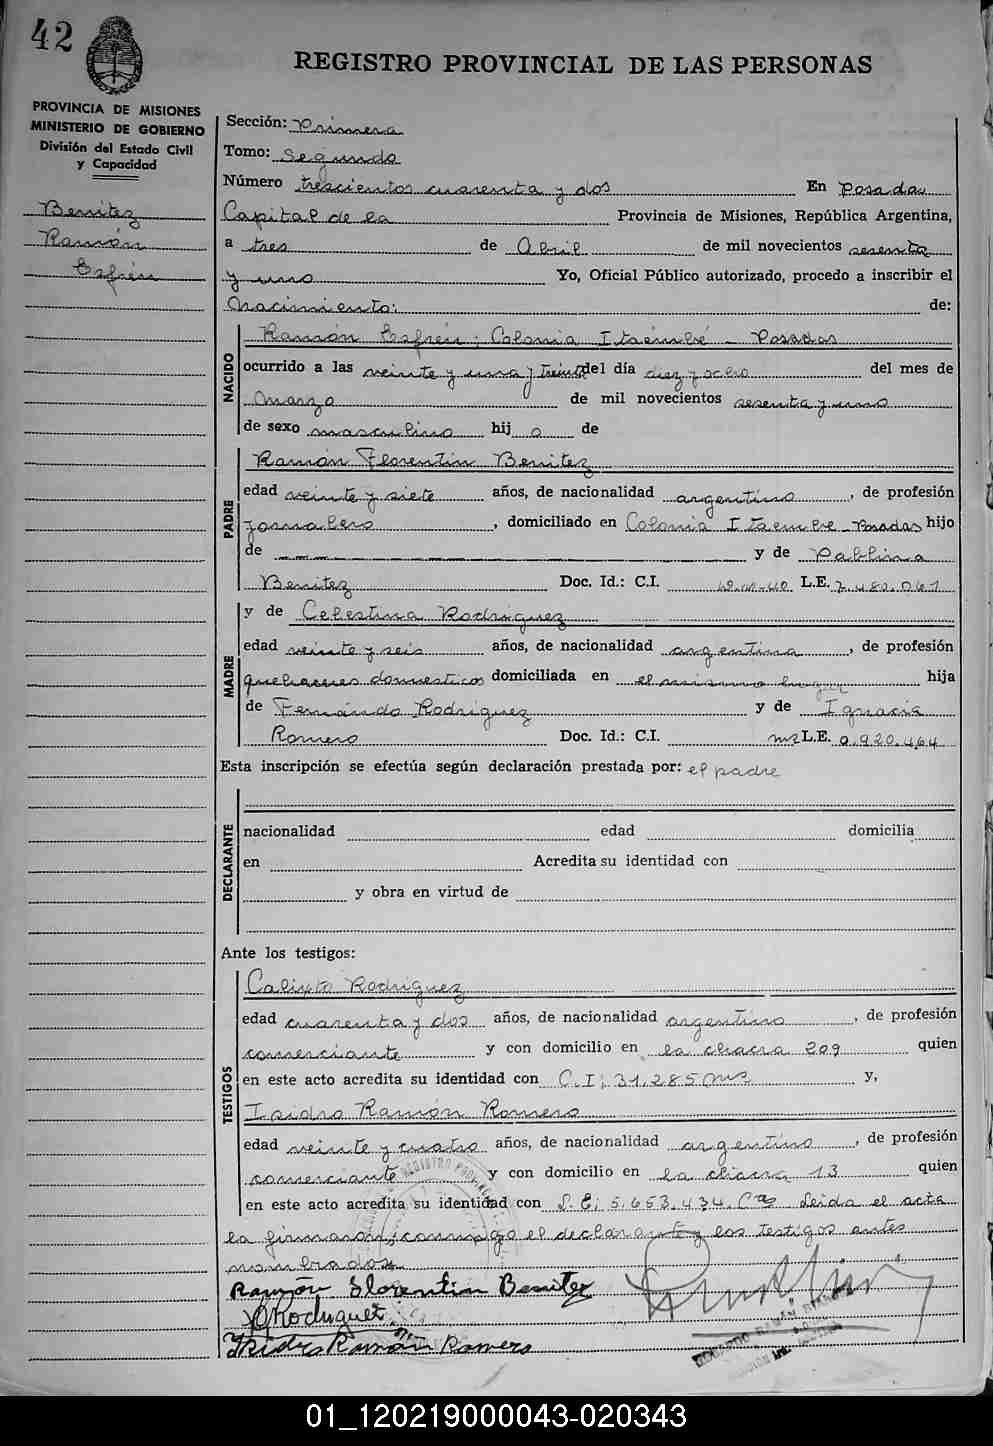 42
REGISTRO PROVINCIAL DE LAS PERSONAS
PROVINCIA DE MISIONES
MINISTERIO DE GOBIERNO
División del Estado Civil
y Capacidad
Benitez
Ramón
Esfrén
Sección: Primera
Tomo: Segundo
Número trescientos cuarenta y dos En Posadas
Capital de la Provincia de Misiones, República Argentina,
a tres de Abril de mil novecientos sesenta
y uno Yo, Oficial Público autorizado, procedo a inscribir el
Nacimiento: de:
NACIDO
Ramón Esfrén; Colonia Itaembé - Posadas
ocurrido a las veinte y una y treinta del día diez y ocho del mes de
Marzo de mil novecientos sesenta y uno
de sexo masculino hij o de
PADRE
Ramón Florentin Benitez
edad veinte y siete años, de nacionalidad argentino, de profesión
Jornalero, domiciliado en Colonia Itaembe Posadas hijo
de y de Pablina
Benitez Doc. Id.: C.I. L.E. 7.480.061
MADRE
y de Celestina Rodriguez
edad veinte y seis años, de nacionalidad argentina, de profesión
quehaceres domesticos domiciliada en el mismo lugar hija
de Fernando Rodriguez y de Ignacia
Romero Doc. Id.: C.I. L.E. 0.920.464
Esta inscripción se efectúa según declaración prestada por: el padre
DECLARANTE
nacionalidad edad domicilia
en Acredita su identidad con
y obra en virtud de
Ante los testigos:
TESTIGOS
Calixto Rodriguez
edad cuarenta y dos años, de nacionalidad argentino, de profesión
comerciante y con domicilio en la chacra 209 quien
en este acto acredita su identidad con C.I; 31.285 ms y,
Isidro Ramón Romero
edad veinte y cuatro años, de nacionalidad argentino, de profesión
comerciante y con domicilio en la chacra 13 quien
en este acto acredita su identidad con L.E; 5.653.434 Leida el acta
la firmaron, conmigo el declarante y los testigos antes
nombrados
Ramón Florentin Benitez
C Rodriguez
Isidro Ramón Romero
01_120219000043-020343